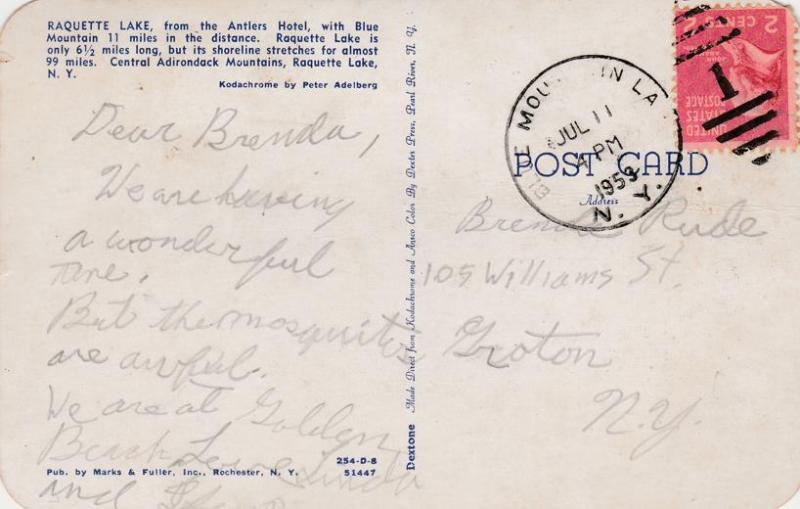 RAQUETTE LAKE, from the Antlers Hotel, with Blue
Mountain 11 miles in the distance. Raquette Lake is
only 6½ miles long, but its shoreline stretches for almost
99 miles. Central Adirondack Mountains, Raquette Lake,
N. Y.
Kodachrome by Peter Adelberg
Dear Brenda,
We are having
a wonderful
time.
But the mosquitos
are awful.
We are at Golden
Beach Love Linda
and
254-D-8
Pub. by Marks & Fuller, Inc., Rochester, N. Y. 51447
Dextone Made Direct from Kodachrome and Ansco Color By Dexter Press, Pearl River, N. Y.
BLUE MOUNTAIN LA
JUL 11
4 PM
1959
N. Y.
1
UNITED
STATES
POSTAGE
JOHN
ADAMS
2 CENTS 2
POST CARD
Address
Brenda Rude
109 Williams St.
Groton
N.Y.